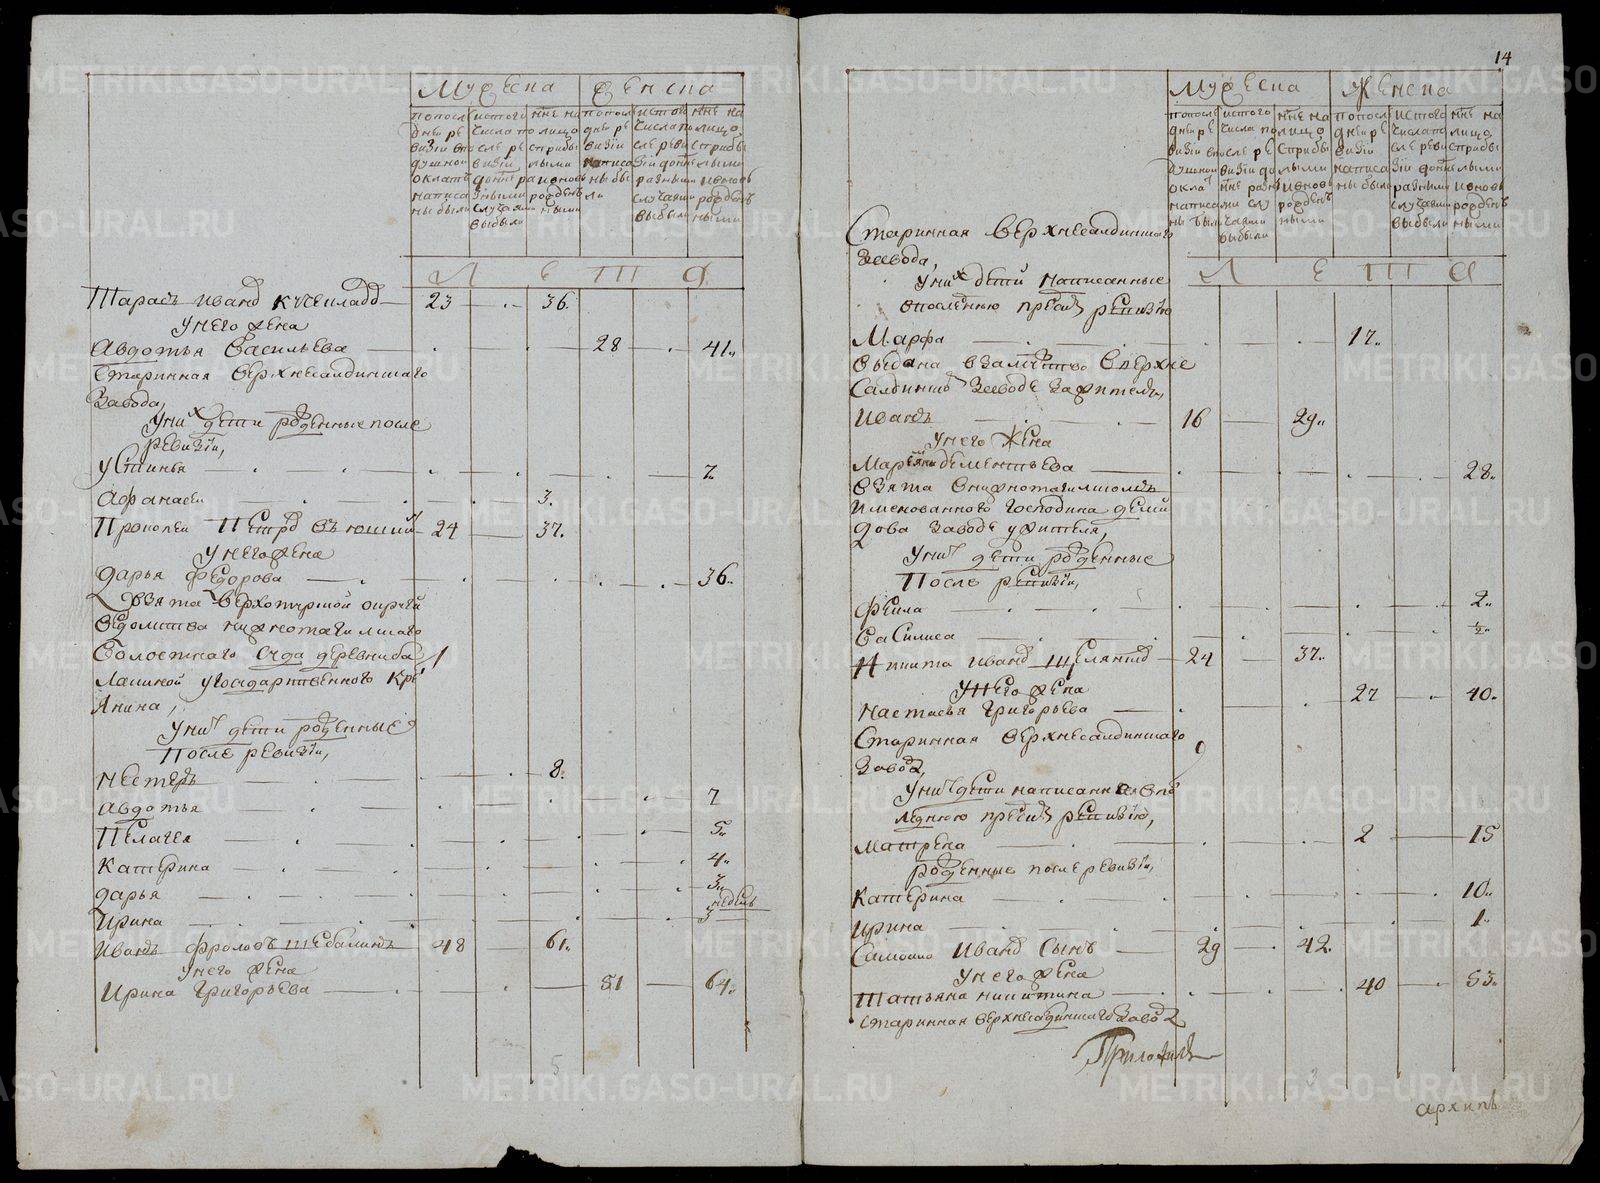 METRIKI.GASO-URAL.RU
Мужеска
Женска
по посл
дней ре
визіи в по
душном
окладѣ
написа
ны были
ис того
числа по
сле ре
визіи
до нне ра
зными
случаями
выбыли
нне на
лицо
с прибы
лыми
и вновь
рожденъ
ными
по посл
дней ре
визіи
написа
ны бы
ли
ис того
числа по
сле реви
зіи до нне
разными
случаями
выбыли
нне на
лицо
с прибы
лыми
и вновь
рожденъ
ными
Л Е Т А
Тарасъ Иванов 23 36.
У него жена
Авдотья Васильева 28 41.
Старинная Верхнесалдинскаго
Завода,
У них дети рожденные после
ревизіи,
Устинья 7.
Афанасеи 3.
Прокопеи Петров 24 37.
У него жена
Дарья Федорова 36.
Взята Верхотурской округи
ведомства нижнотагилскаго
Волостнаго Суда деревни Ба
лакиной у государственного Кре
янина,
У них дети рожденные
После ревизіи,
Нестеръ 8.
Авдотья 7
Пелагея 5.
Катерина 4.
Дарья 3.
недель
Ирина 3
Иванъ Фроловъ Шебалинъ 48 61.
У него жена
Ирина Григорьева 51 64.
14
Мужеска
Женска
по посл
дней ре
визіи в по
душном
окладѣ
написа
ны были
ис того
числа по
сле ре
визіи до
нне раз
ми слу
чаями
выбыли
нне на
лицо
с прибы
лыми
и вновь
рожденъ
ными
по посл
дней ре
визіи
написа
ны были
ис того
числа по
сле реви
зіи до нне
разными
случаями
выбыли
нне на
лицо
с прибы
лыми
и вновь
рожденъ
ными
Л Е Т А
Старинная Верхнесалдинскаго
Завода,
У них дети написанные
в последнюю пред сим ревизію
Марфа 17.
Выдана в замужство в Верхне
Салдинском Заводе за жителя,
Иванъ 16 29.
У него Жена
Марья Дементьева 28.
Взята в нижнотагилском
имянованного Господина Деми
дова Заводе у жителя,
У них дети рожденные
После ревизіи,
Фекла 2.
Василиса ½.
Никита Иванов 24 37.
У него жена 27 40.
Настасья Григорьева
Старинная Верхнесалдинскаго
Завода,
У них дети написанная в по
леднюю пред сим ревизію,
Матрена 2 15
рожденные после ревизіи,
Катерина 10.
Ирина 1.
Самоило Иванов Сынъ 29 42.
У него жена
Татьяна Никитина 40 53.
Старинная Верхнесалдинскаго Завода
5
3
архипъ